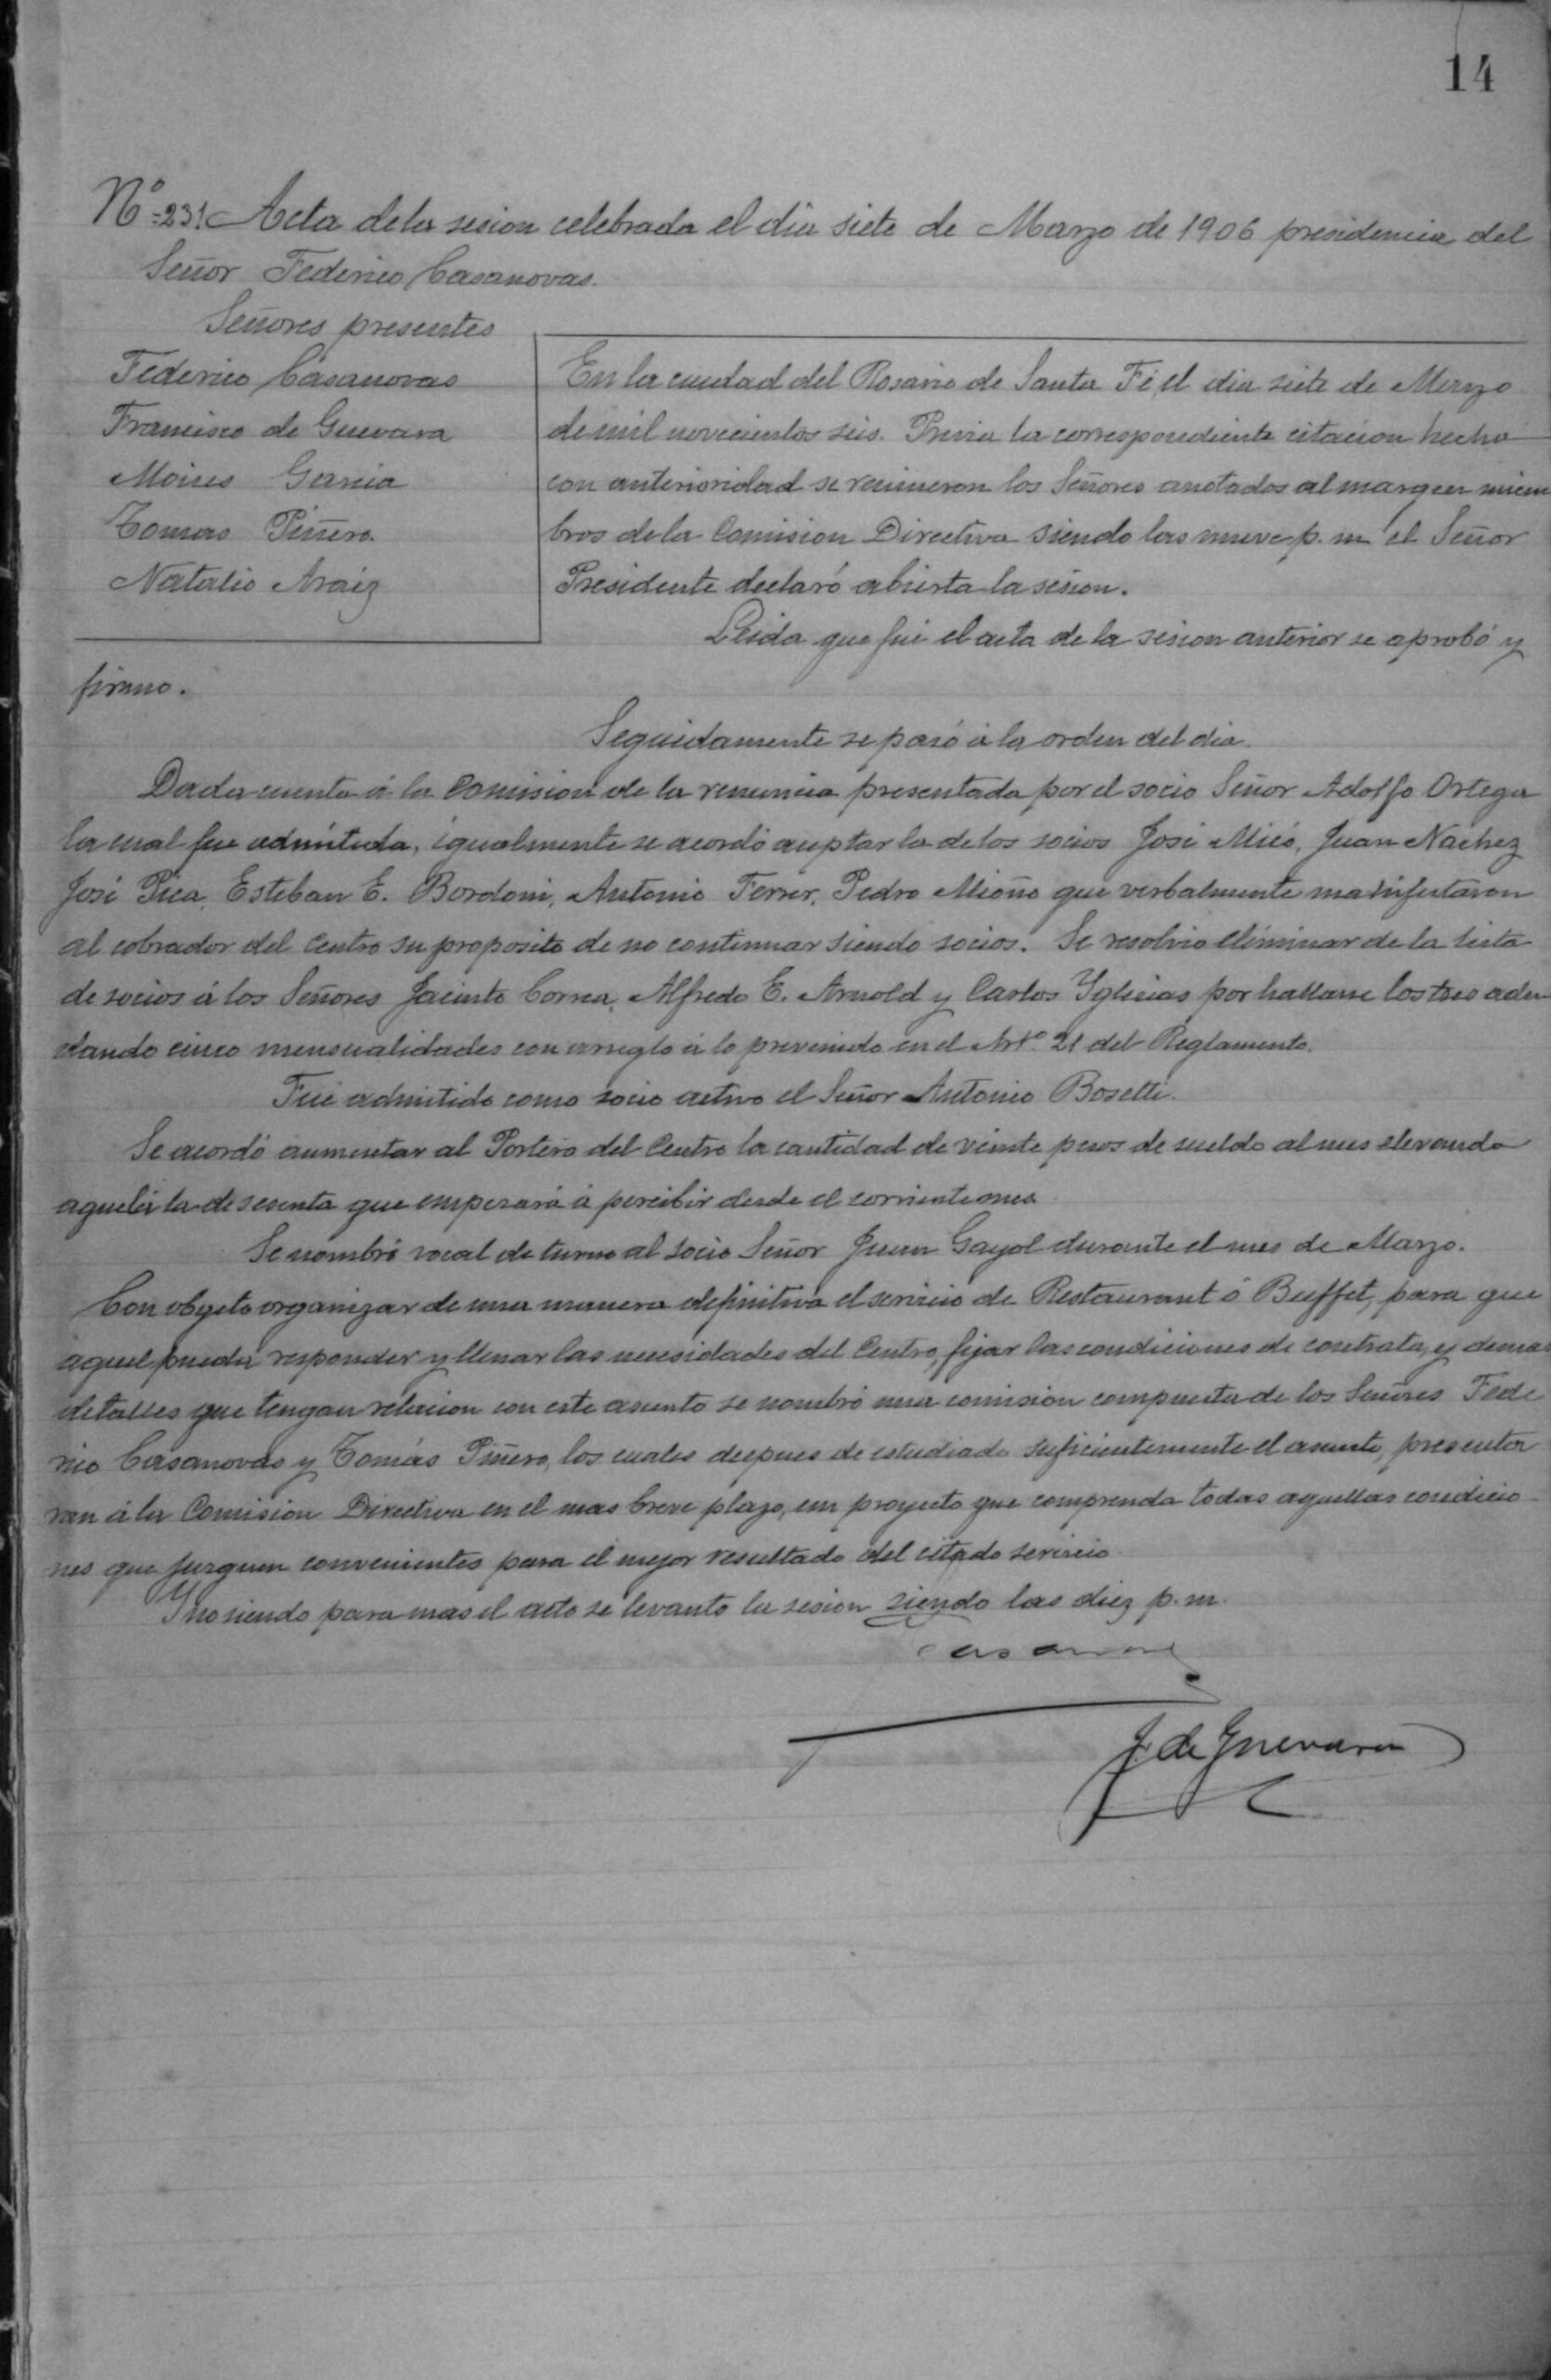 14
Nº=231. Acta de la sesion celebrada el dia siete de Marzo de 1906 presidencia del
Señor Federico Casanovas.
Señores presentes
Federico Casanovas
Francisco de Guevara
Moises Garcia
Tomas Piñero
Natalio Araiz
En la ciudad del Rosario de Santa Fé, el dia siete de Marzo
de mil novecientos seis. Previa la correspondiente citacion hecha
con anterioridad se reunieron los Señores anotados al margen miem
bros de la Comision Directiva siendo las nueve p. m el Señor
Presidente declaró abierta la sesion.
Leida que fué el acta de la sesion anterior se aprobó y
firmo.
Seguidamente se pasó á la orden del dia.
Dada cuenta á la Comision de la renuncia presentada por el socio Señor Adolfo Ortega
la cual fue admitida, igualmente se acordó aceptar la de los socios José Micó, Juan Nachez
José Pica, Esteban E. Bordoni, Antonio Ferrer, Pedro Mioño que verbalmente manifestaron
al cobrador del Centro su proposito de no continuar siendo socios. Se resolvio eliminar de la lista
de socios á los Señores Jacinto Correa, Alfredo E. Arnold y Carlos Yglesias por hallarse los tres adeu
dando cinco mensualidades con arreglo á lo prevenido en el Artº. 21 del Reglamento.
Fué admitido como socio activo el Señor Antonio Bosetti.
Se acordó aumentar al Portero del Centro la cantidad de veinte pesos de sueldo al mes elevando
aquel á la de sesenta que empezará á percibir desde el corriente mes
Se nombró vocal de turno al socio Señor Juan Gayol durante el mes de Marzo.
Con objeto organizar de una manera definitiva el servicio de Restaurant ó Buffet, para que
aquel pueda responder y llenar las necesidades del Centro, fijar las condiciones de contrata, y demas
detalles que tengan relacion con este asunto se nombró una comision compuesta de los Señores Fede
rico Casanovas y Tomás Piñero, los cuales despues de estudiado suficientemente el asunto, presenta
ran á la Comision Directiva en el mas breve plazo, un proyecto que comprenda todas aquellas condicio-
nes que juzguen convenientes para el mejor resultado del citado servicio
Y no siendo para mas el acto se levanto la sesion siendo las diez p. m.
Casanovas
F. de Guevara